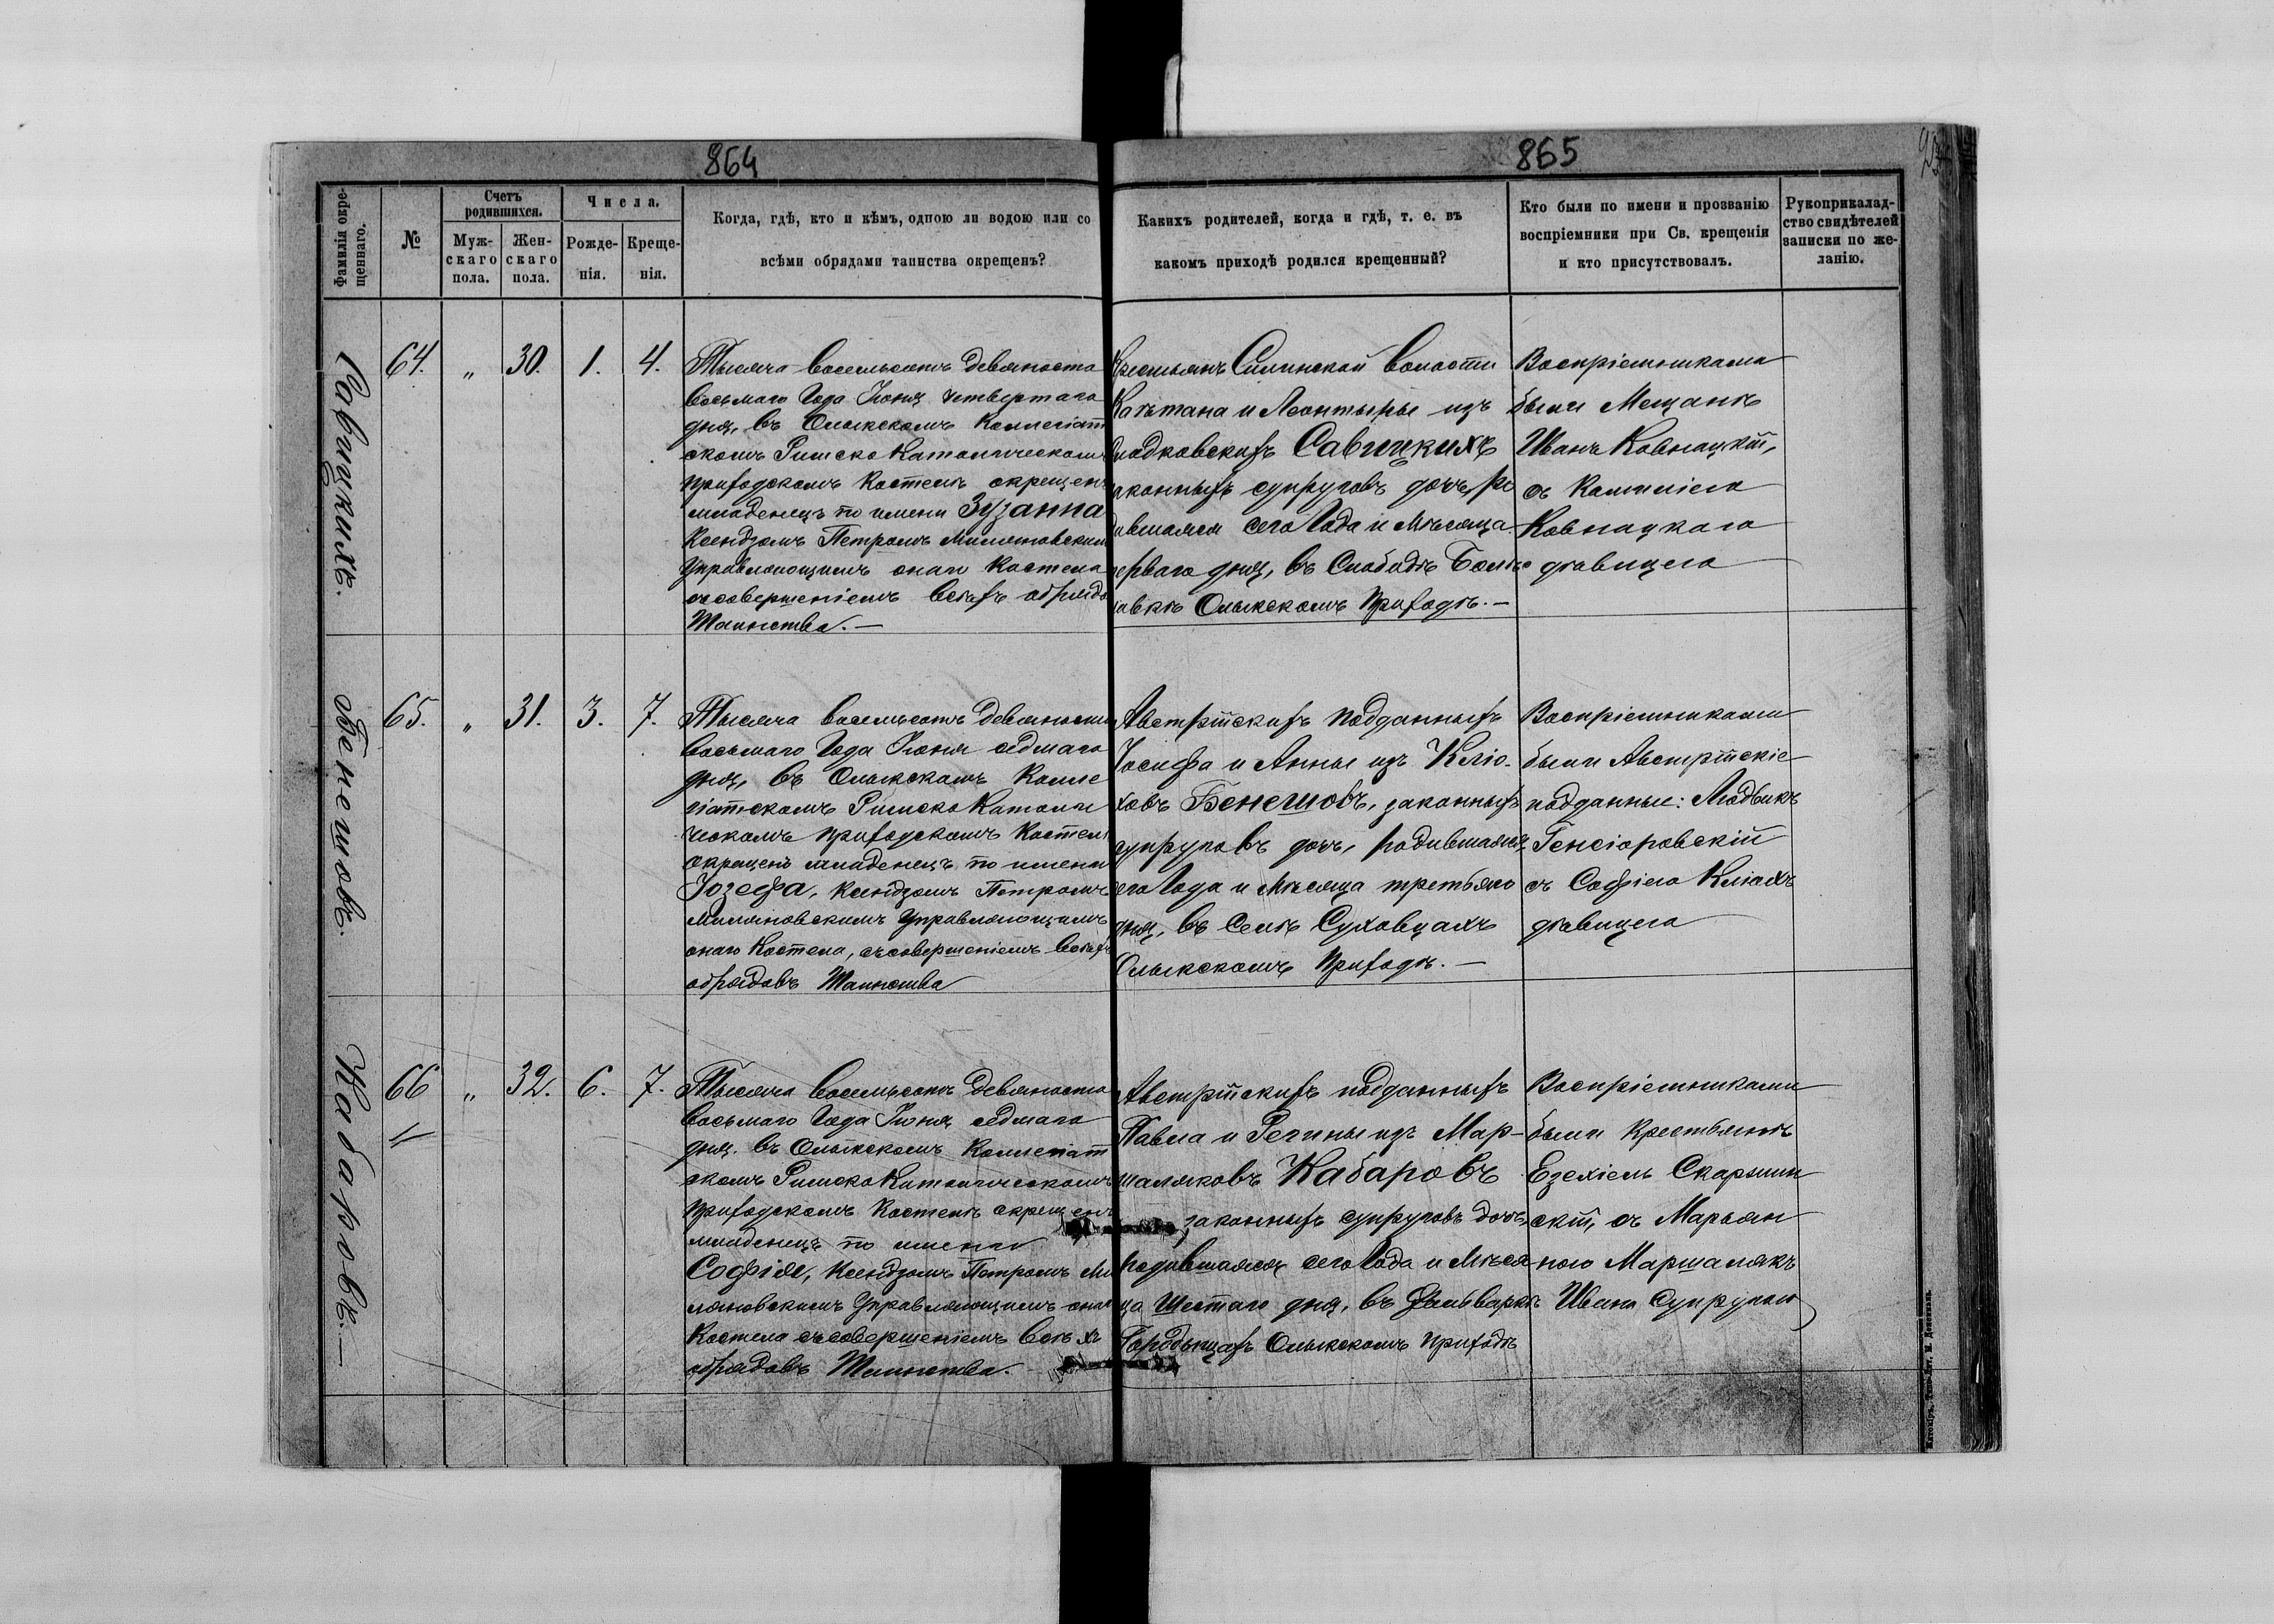 864
865
Фамилія окре-
щеннаго.
№
Счетъ
родившихся.
Муж-
скаго
пола.
Жен-
скаго
пола.
Числа.
Рожде-
нія.
Креще-
нія.
Когда, гдѣ, кто и кѣмъ, одною ли водою или со
всѣми обрядами таинства окрещенъ?
Какихъ родителей, когда и гдѣ, т. е. въ
какомъ приходѣ родился крещенный?
Кто были по имени и прозванію
воспріемники при Св. крещенія
и кто присутствовалъ.
Рукоприкалад-
ство свидѣтелей
записки по же-
ланію.
Савицкихъ.
64. " 30. 1. 4.
Тысяча восемьсотъ девяноста
восьмаго Года Іюня четвертаго
дня, въ Олыкскомъ Коллегіат
скомъ Римско Католическомъ
приходскомъ Костелѣ окрещенъ
младенецъ по имени Зузанна
Ксендзомъ Петромъ Миляновским
Управляющимъ онаго Костела
съ совершеніемъ всѣхъ обрядо
Таинства.—
Крестьянъ Силинской волости
Каѣтана и Леонтыны изъ
Сладковскихъ Савицкихъ
законныхъ супруговъ дочь, ро
дившаяся сего Года и Мѣсяца
перваго дня, въ Слободѣ
Олыкскомъ Приходѣ.—
Воспріемниками
были Мещане
Иванъ Ковнацкій,
съ Камиліею
Ковнацкаго
дѣвицею
Бенешовъ.
65. " 31. 3. 7.
Тысяча восемьсотъ девяноста
восьмаго Года Іюня седмаго
дня, въ Олыкскомъ Колле
гіатскомъ Римско Католи
ческомъ приходскомъ Костелѣ
окрещенъ младенецъ по имени
Іозефа, Ксендзомъ Петромъ
Миляновскимъ Управляющимъ
онаго Костела, съ совершеніемъ всѣхъ
обрядовъ Таинства
Австрійскихъ подданныхъ
Іосифа и Анны изъ Кліо-
ховъ Бенешовъ, законныхъ
супруговъ дочь, родившаяся
сего Года и Мѣсяца третьяго
дня, въ селѣ Суховцахъ
Олыкскомъ Приходѣ.—
Воспріемниками
были Австрійскіе
подданные: Людвикъ
Генсіоровскій
съ Софіею Кліахъ
дѣвицею
Кабаровъ.—
66 " 32. 6. 7.
Тысяча восемьсотъ девяноста
восьмаго Года Іюня седмаго
дня. въ Олыкскомъ Коллегіат
скомъ Римско Католическомъ
приходскомъ Костелѣ окрещенъ
младенецъ по имени
Софія, Ксендзомъ Петромъ Ми
ляновскимъ Управляющимъ онаго
Костела съ совершеніемъ всѣхъ
обрядовъ Таинства.
Австрійскихъ подданныхъ
Павла и Регины изъ Мар-
шаляковъ Кабаровъ
законныхъ супруговъ дочь,
родившаяся сего Года и Мѣся
ца Шестаго дня, въ Фольваркѣ
Городыщахъ Олыкскомъ приходѣ
Воспріемниками
были Крестьяне
Езехіель Скаржин
скій, съ Марьян
ною Маршалякъ
Ивана Супругою